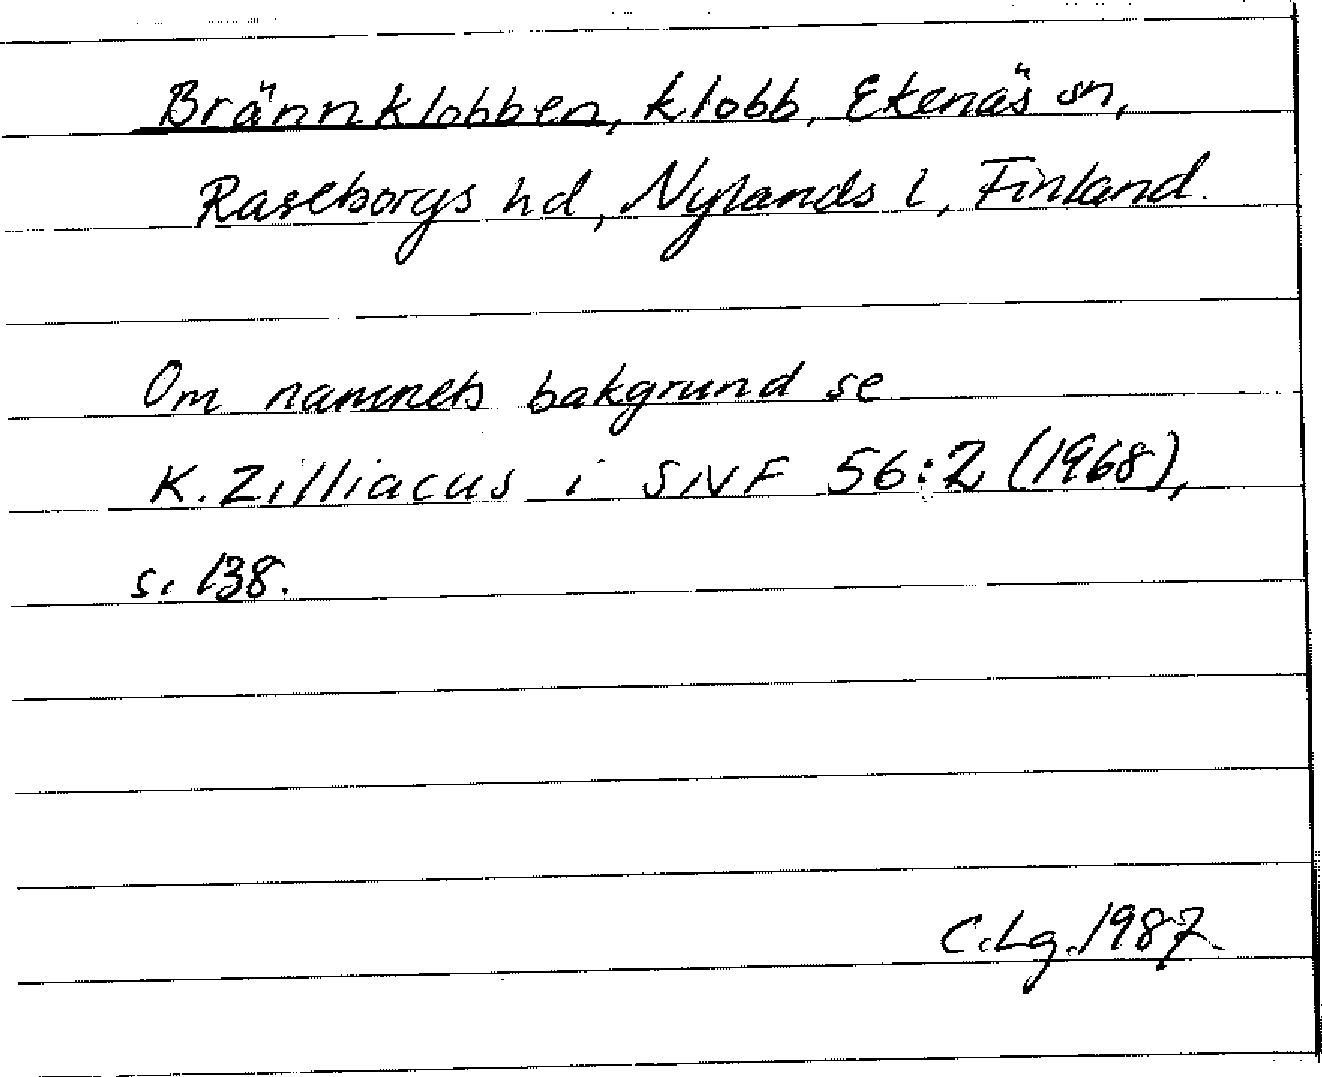 Brännklobben, klobb, Ekenäs sn,
Raseborgs hd, Nylands l, Finland.
Om namnets bakgrund se
K. Zilliacus i SNF 56:2 (1968),
s. 138.
C.Lg. 1987